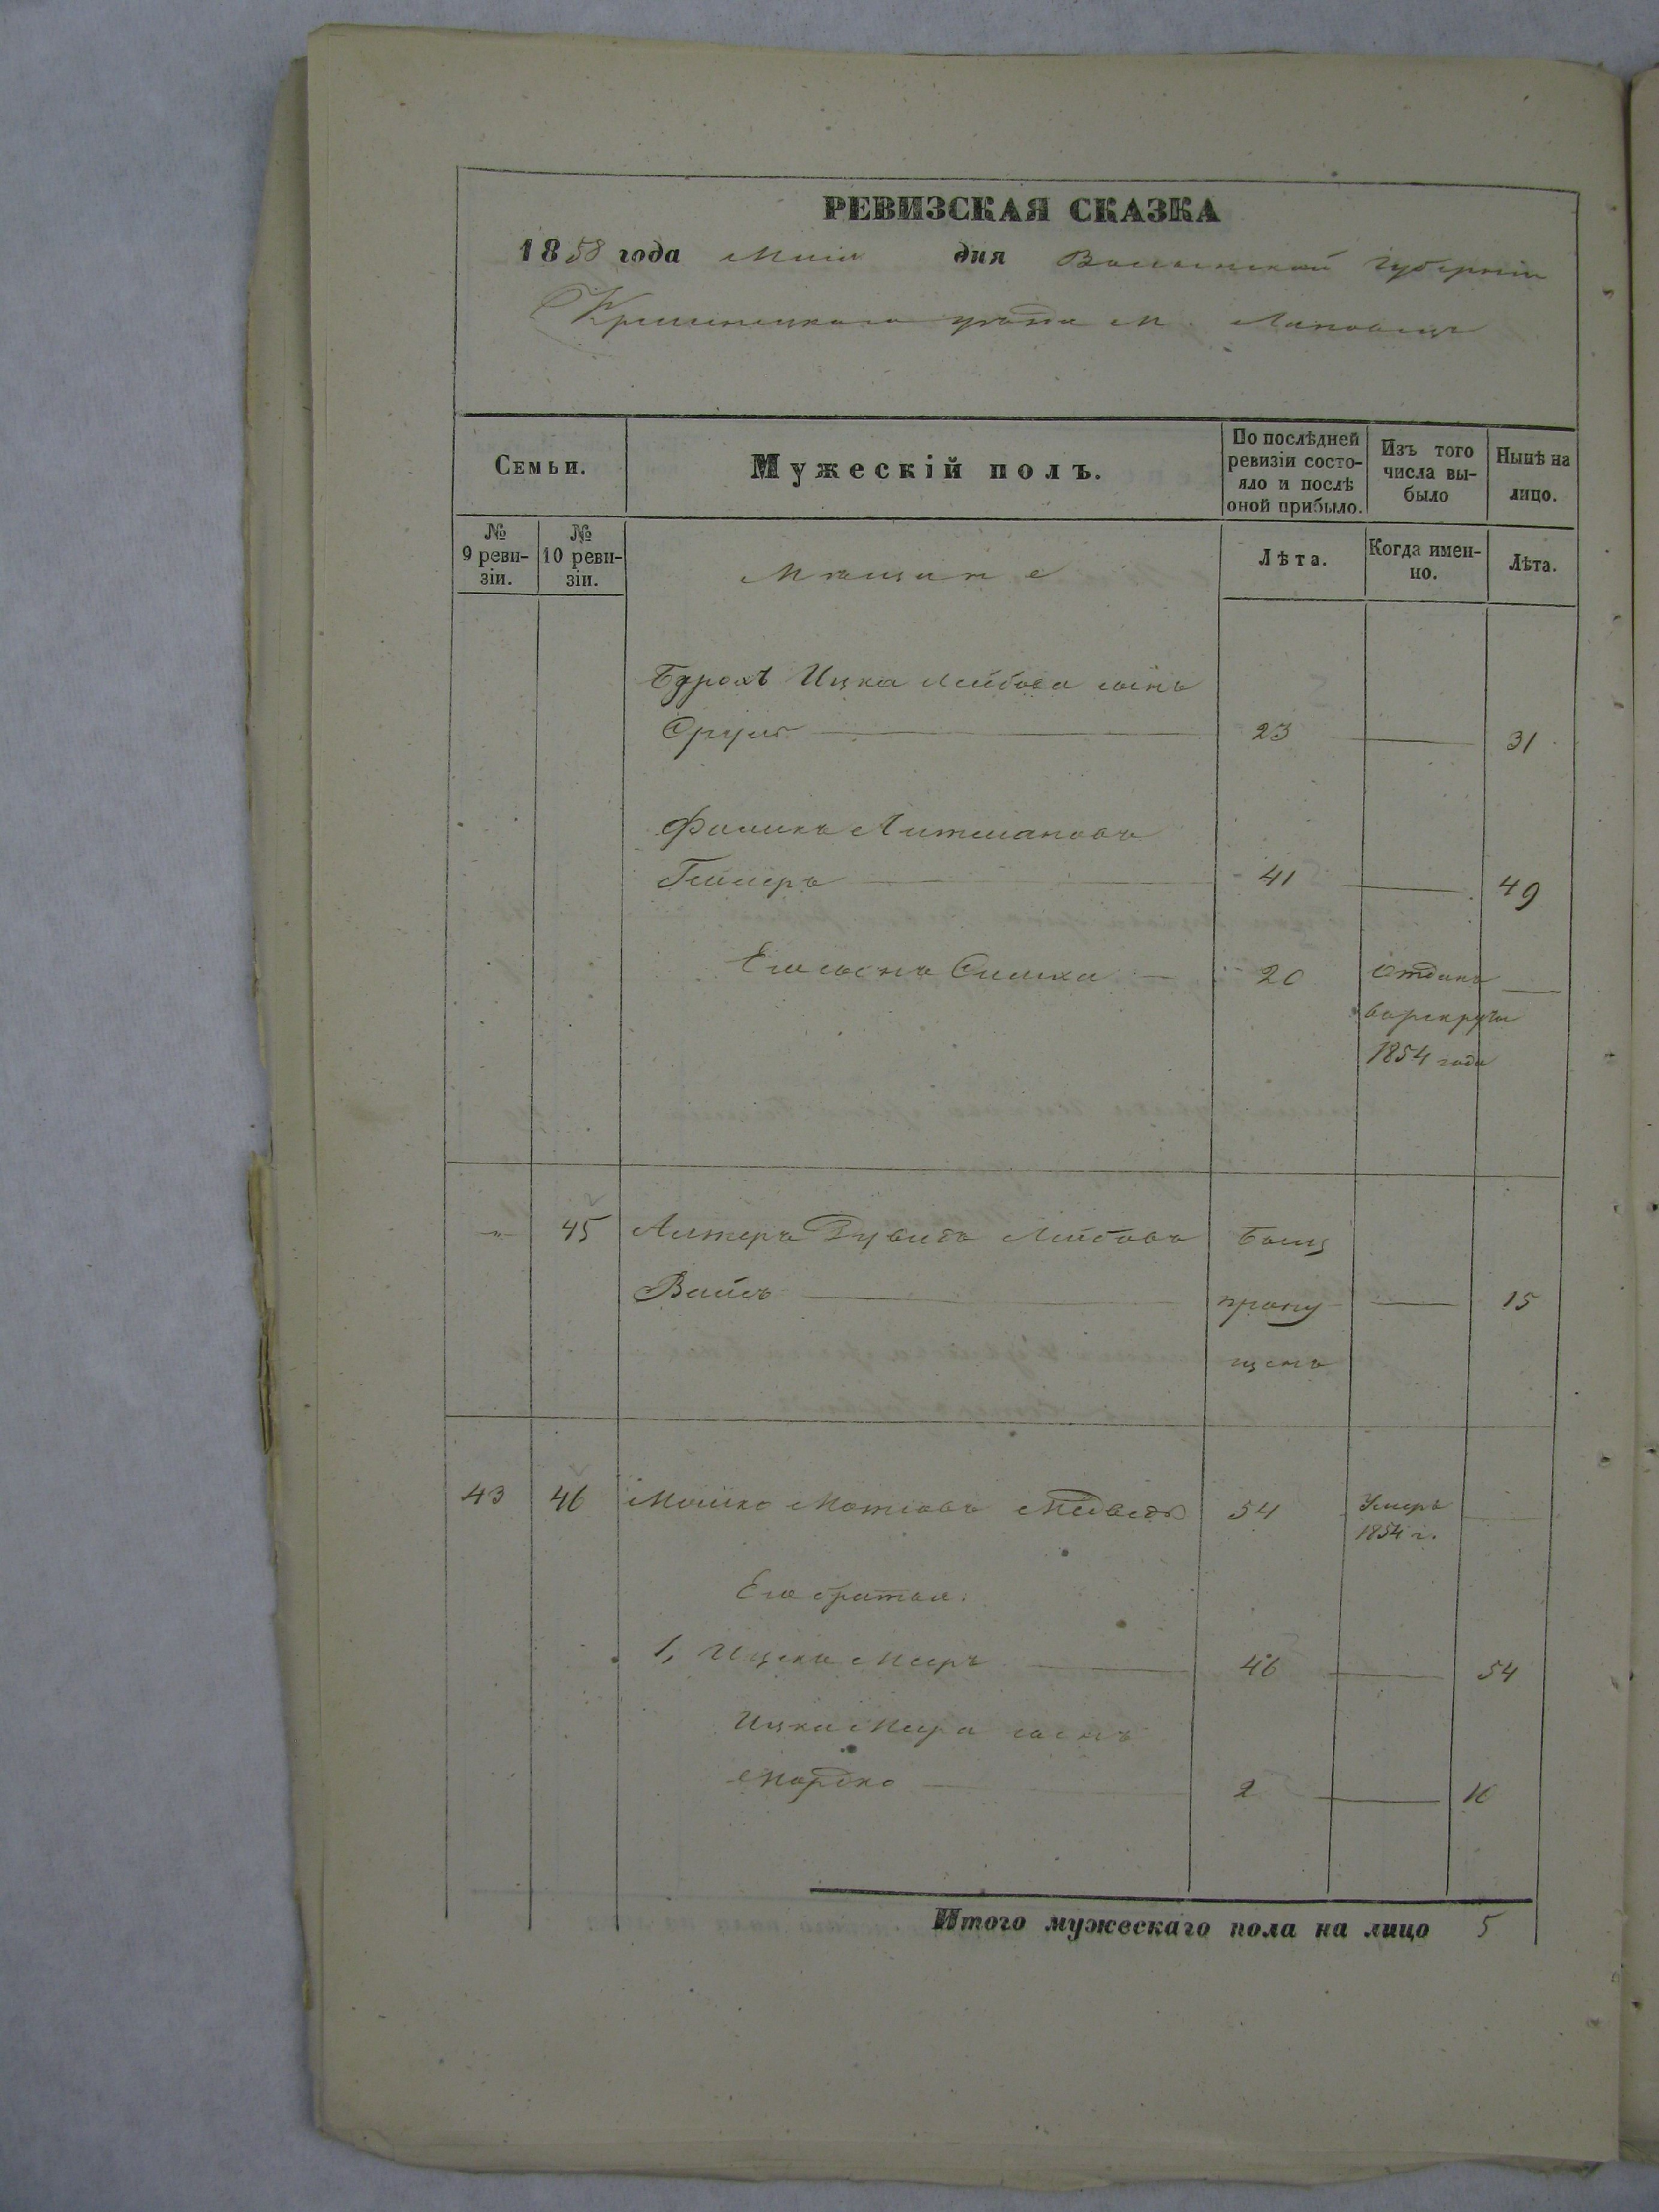 РЕВИЗСКАЯ СКАЗКА
1858 года Мая дня Волынской губернии
Кременецкаго уезда м. Лановець
Семьи.
Мужескій полъ.
По послѣдней ревизіи состо-
яло и послѣ
оной прибыло.
Изъ того
числа вы-
было
Нынѣ на
лицо.
№
9 реви-
зіи.
№
10 реви-
зіи.
Мещане
Лѣта.
Когда имен-
но.
Лѣта.
Ицка Лейбова сынъ
Сруль 23 31
Фишель Литмановъ
41 49
Его сынъ Симха 20 Отданъ
в рекруты
1854 года
" 45 Алтеръ Дувидъ Лейбовъ Былъ
Вайсъ пропу 15
щенъ
43 46 Мошко Мотіовъ Медведь 54 Умеръ
1854 г.
Его братья:
1, Ицко Мееръ 46 54
Ицка Меера сынъ
Мордко 2 10
Итого мужескаго пола на лицо 5